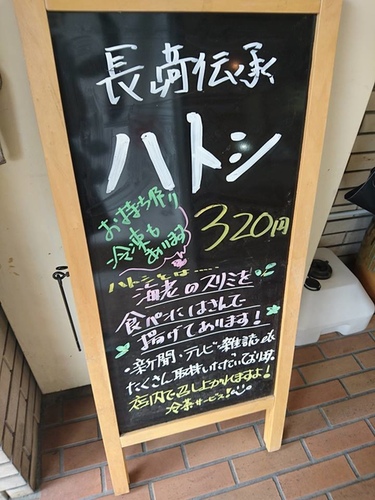 長崎伝承
ハトシ
お持ち帰り
冷凍も
あります
320円
ハトシとは……
海老のスリミを
食パンにはさんで
揚げてあります!
・新聞・テレビ・雑誌etc
たくさん取材いただいております。
店内で召し上がれますよ!
冷茶サービス!